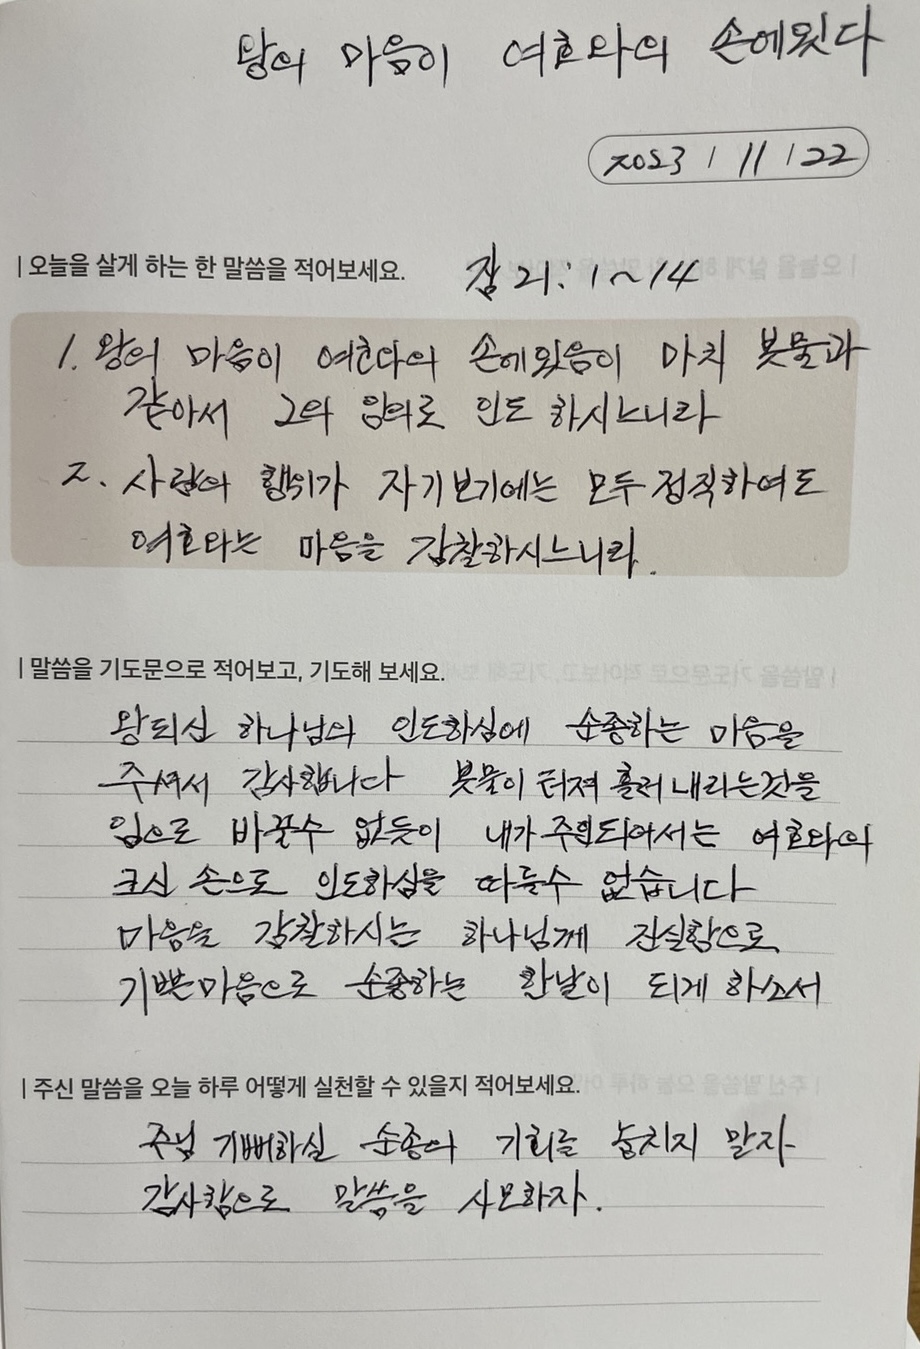 왕의 마음이 여호와의 손에있다
2023 / 11 / 22
| 오늘을 살게 하는 한 말씀을 적어보세요. 잠 21:1~14
1. 왕의 마음이 여호와의 손에있음이 마치 봇물과
같아서 그의 임의로 인도 하시느니라
2. 사람의 행위가 자기보기에는 모두 정직하여도
여호와는 마음을 감찰하시느니라.
| 말씀을 기도문으로 적어보고, 기도해 보세요.
왕되신 하나님의 인도하심에 순종하는 마음을
주셔서 감사합니다 봇물이 터져 흘러 내리는것을
임으로 바꿀수 없듯이 내가 주인되어서는 여호와의
크신 손으로 인도하심을 따를수 없습니다
마음을 감찰하시는 하나님께 진실함으로
기쁜마음으로 순종하는 한날이 되게 하소서
| 주신 말씀을 오늘 하루 어떻게 실천할 수 있을지 적어보세요.
주님 기뻐하실 순종의 기회를 놓치지 말자
감사함으로 말씀을 사모하자.